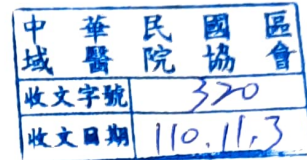 中華民國區
域醫院協會
收文字號 320
收文日期 110.11.3